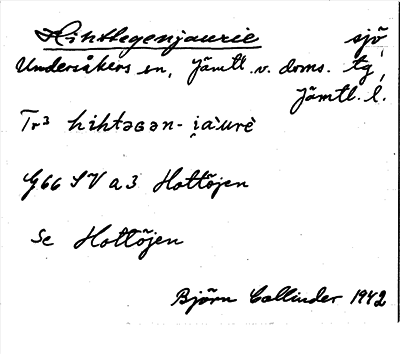 Hihtegenjaurie sjö,
Undersåkers sn, Jämtl. v. doms. tg,
Jämtl. l.
Tr3 hihtəɢən-i̯a`urè
G66 SV a3 Hottöjen
Se Hottöjen
Björn Collinder 1942